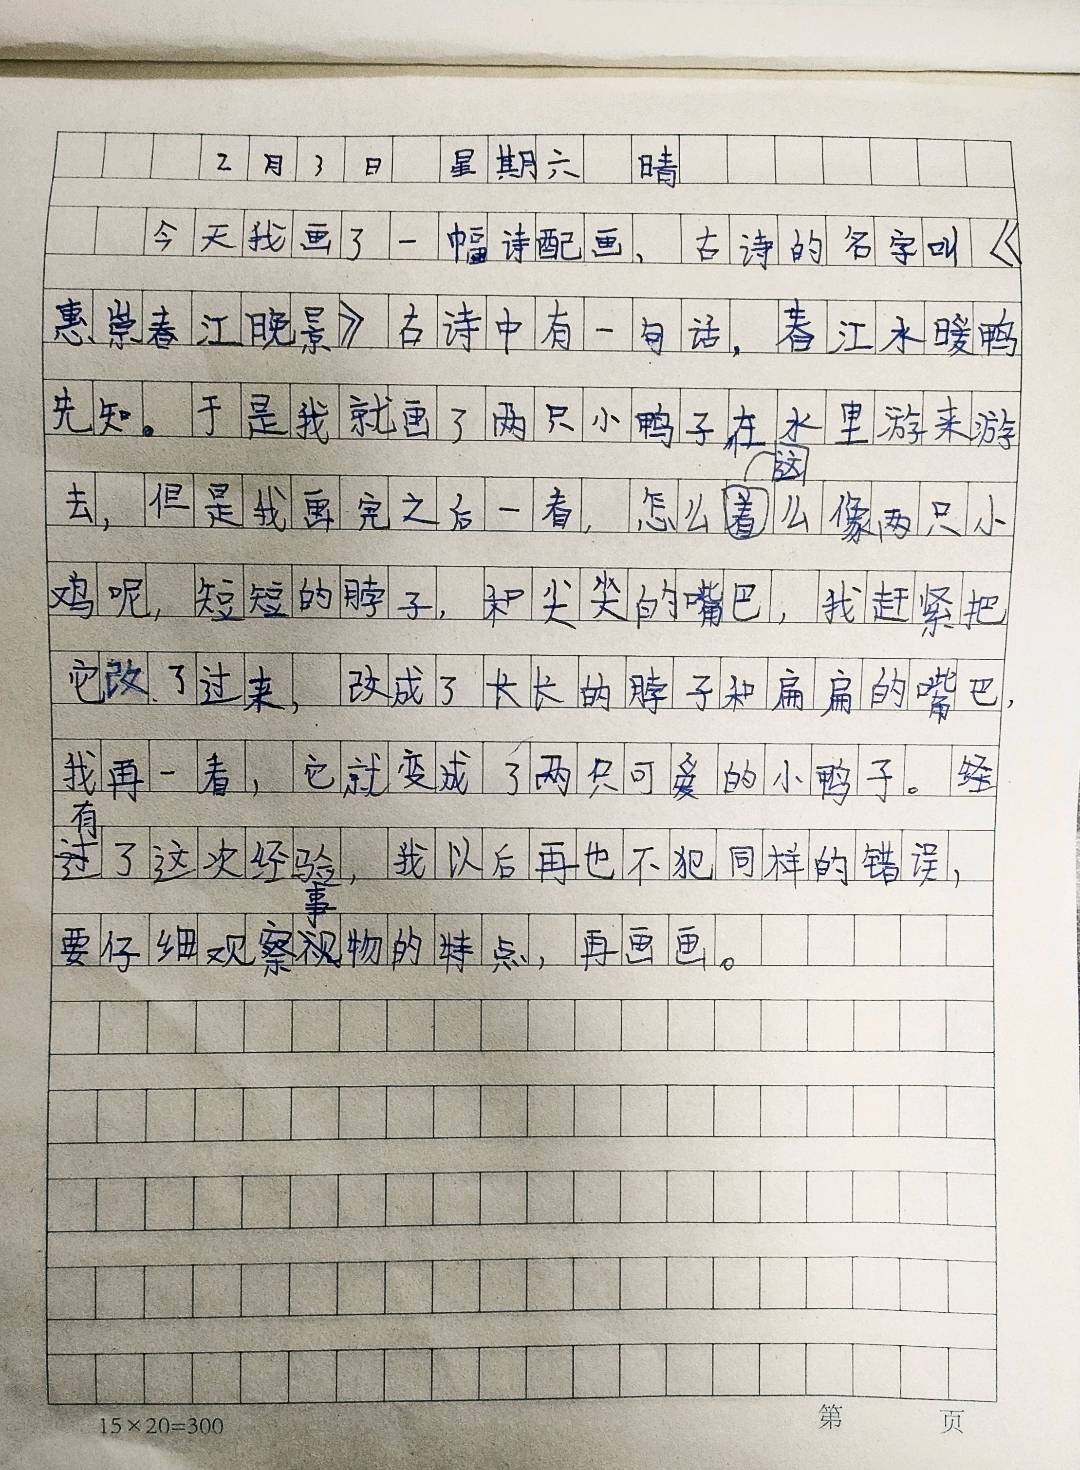 2月3日 星期六 晴
今天我画了一幅诗配画、古诗的名字叫《
惠崇春江晚景》古诗中有一句话，春江水暖鸭
先知。于是我就画了两只小鸭子在水里游来游
这
去，但是我画完之后一看，怎么着么像两只小
鸡呢，短短的脖子，和尖尖的嘴巴，我赶紧把
它改了过来，改成了长长的脖子和扁扁的嘴巴，
我再一看，它就变成了两只可爱的小鸭子。经
有
过了这次经验，我以后再也不犯同样的错误，
事
要仔细观察视物的特点，再画画。
15×20=300 第 页